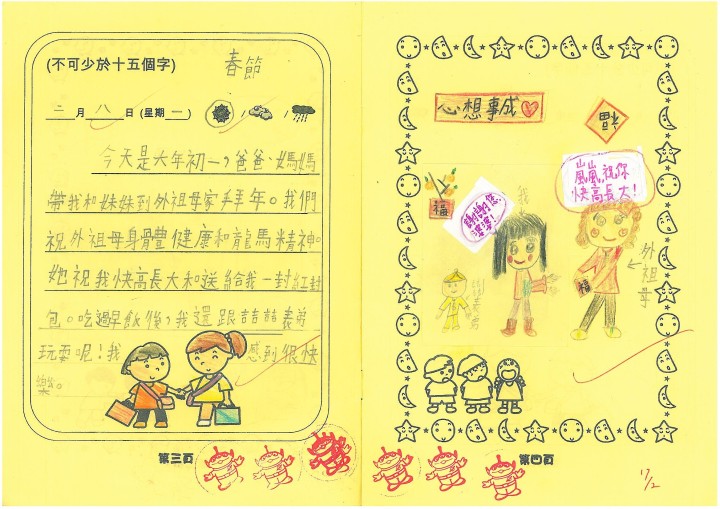 (不可少於十五個字)
春節
二月八日(星期一)
今天是大年初一,爸爸、媽媽
帶我和妹妹到外祖母家拜年。我們
祝外祖母身體健康和龍馬精神。
她祝我快高長大和送給我一封紅封
包。吃過早飯後,我還跟喆喆表弟
玩耍呢!我感到很快
樂。
第三頁
心想事成
福
嵐嵐,祝你
快高長大!
福
謝謝您,
婆婆!
我
外祖母
福
第四頁
17/2